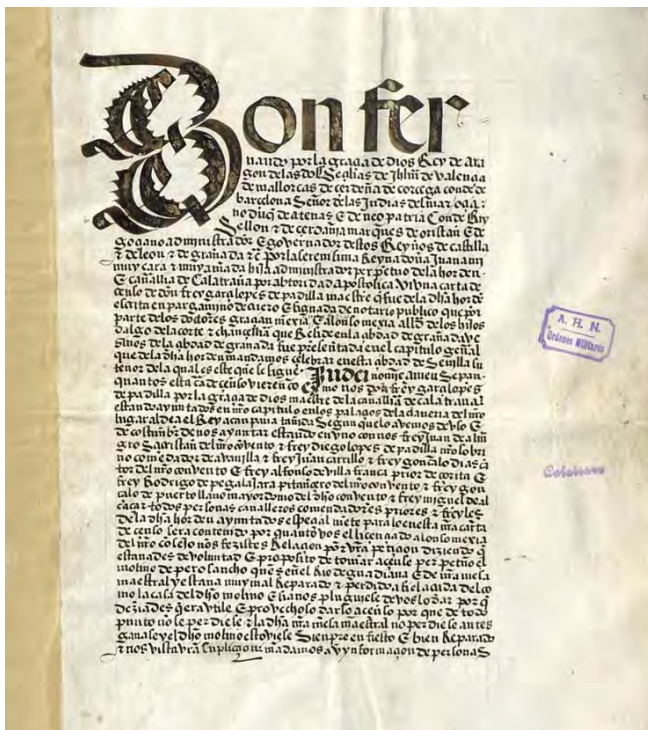 Don fer
nando por la graçia de dios Rey de Ara
gon de las dos Seçilias de Jhrlm de valençia
de mallorcas de cerdeña de corçega conde de
barcelona Señor de las Jndias del mar oçea
no duq de atenas E de neopatria Conde de Ruy
sellon & de cerdania marques de oristan E de
goçiano administrador E governador destos Reynos de castilla
& de leon & de granada &c por la serenisima Reyna doña Juana mi
muy cara & muy amada hija administrador perpetuo de la horden
E cavallia de Calatrava por abtoridad apostolica Vi vna carta de
çenso de don frey garçia lopes de padilla maestre q fue de la dha horden
escrita en pargamino de cuero E signada de notario publico que por
parte de los dotores gragan mexia E alonso mexia allds de los hijos
dalgo de la corte & chançelleria que Reside en la çibdad de granada ve
sinos de la çibdad de granada fue presentada en el capitulo geñal
que de la dha horden mandamos çelebrar en esta çibdad de Sevilla su
tenor de la qual es este que se sigue Jn dei nomine amen Sepan
quantos esta carta de çenso vieren como nos don frey garçia lopes
de padilla por la graçia de dios maestre de la cavallia de calatrava
estando ayuntados en nro capitulo en los palaçios de la
lugar aldea el Rey a canpana tañida Segun que lo avemos de vso E
de costunbre de nos ayuntar estando en vno con nos frey Juan de alma
gro Sacristan del nro convento & frey diego lopes de padilla nro sobri
no comendador de & frey Juan carrillo & frey gonçalo dias cla
vero del nro convento E frey alfonso de villa franca prior de çorita E
frey Rodrigo de pegalajara pitançero del nro convento & frey gon
çalo de puertollano mayordomo del dho convento & frey miguel de al
caçar todos personas cavalleros comendadores priores & freyles
de la dha horden ayuntados espeçialmente para lo en esta nra carta
de çenso sera contenido por quanto vos el liçençiado alonso mexia
del nro consejo nos fezistes Relaçion por vra petiçion diziendo q
estavades de voluntad E proposito de tomar a çenso perpetuo el
molino de pero sancho que es en el Rio de guadiana E de nra mesa
maestral y estava muy mal Reparado & perdido la caida del co
mo la casa del dho molino E sy a nos pluguiese de vos lo dar por q
deziades q era vtile E provechoso darlo a çenso por que de todo
punto no se perdiese & la dha nra mesa maestral no perdiese antes
ganase y el dho molino estoviese Sienpre enfiesto E bien Reparado
& nos vista vra Suplicaçion mandamos aver ynformaçion de personas
A. H. N.
Ordenes Militares
Calatrava